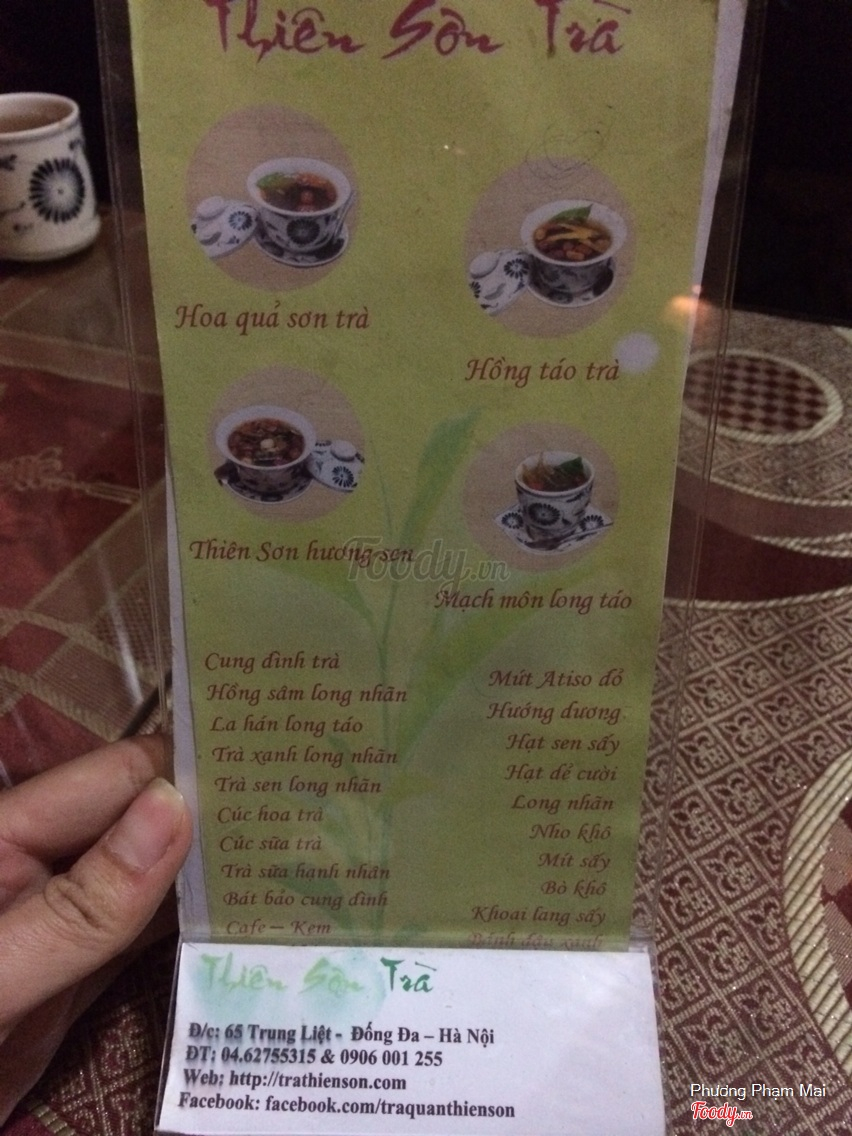 Thiên Sơn Trà
Hoa quả sơn trà
Hồng táo trà
Thiên Sơn hương sen
Foody.vn
Mạch môn long táo
Cung đình trà
Hồng sâm long nhãn
La hán long táo
Trà xanh long nhãn
Trà sen long nhãn
Cúc hoa trà
Cúc sữa trà
Trà sữa hạnh nhân
Bát bảo cung đình
Cafe – Kem
Mứt Atiso đỏ
Hướng dương
Hạt sen sấy
Hạt dẻ cười
Long nhãn
Nho khô
Mít sấy
Bò khô
Khoai lang sấy
Bánh đậu xanh
Thiên Sơn Trà
Đ/c: 65 Trung Liệt - Đống Đa – Hà Nội
ĐT: 04.62755315 & 0906 001 255
Web: http://trathienson.com
Facebook: facebook.com/traquanthienson
Phương Phạm Mai
Foody.vn